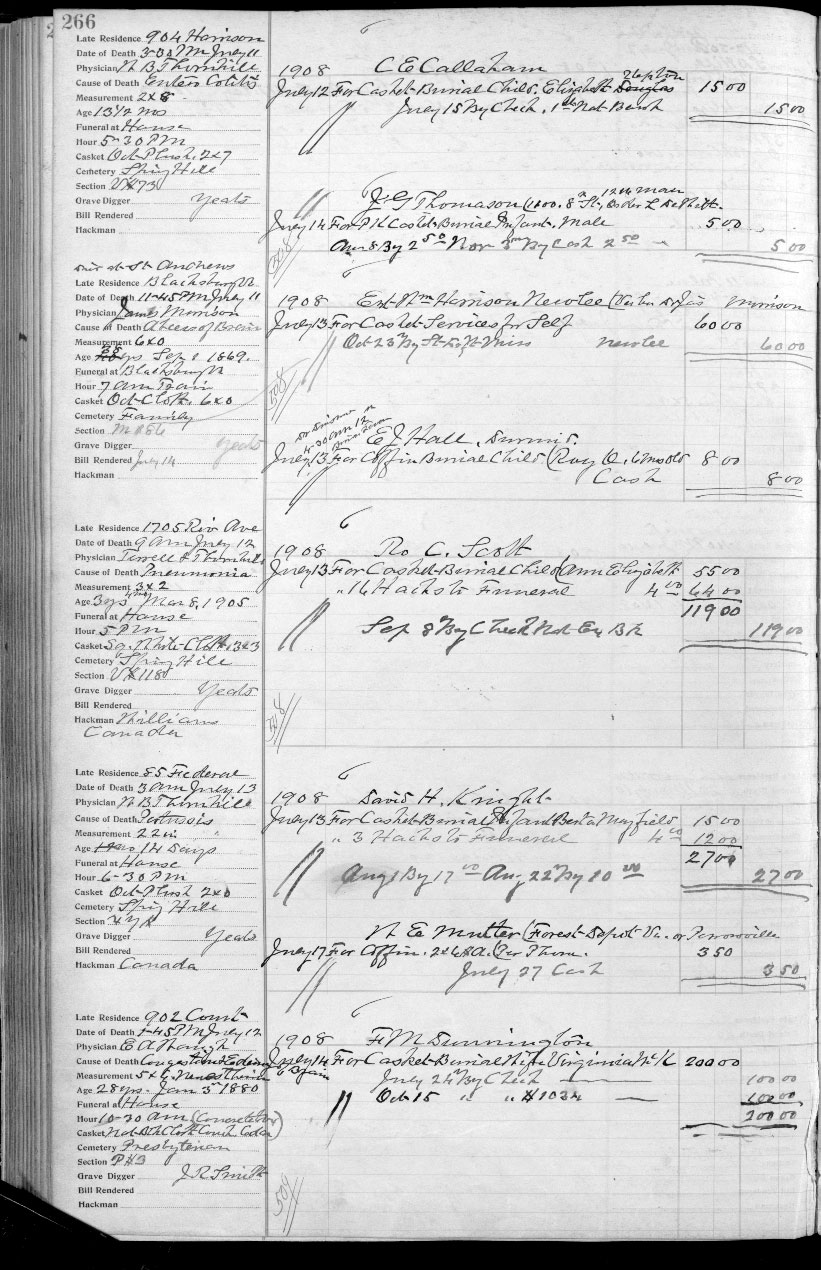 266
Late Residence 904 Harrison
Date of Death 3-00 PM July 11
Physician W B Thornhill
Cause of Death Entero Colitis
Measurement 2x8
Age 13 1/2 mos
Funeral at House
Hour 5-30 PM
Casket Oct Plush. 2x7
Cemetery Spring Hill
Section
Grave Digger Yeats
Bill Rendered
Hackman
1908 C E Callaham
July 12 For Casket Burial Child. Elizabeth Douglas 15 00
July 15 By Check. 1st Nat Bank 15 00
J G Thomason (1600. 8th St,
July 14 For Casket Burial Infant. Male 5 00
Aug 8 By 2 50 Nov 3rd By Cash 2 50 5 00
Died at St Andrews
Late Residence Blacksburg Va
Date of Death 11-45 PM July 11
Physician James Morrison
Cause of Death Abcess of Brain
Measurement 6x0
Age 38 yrs Sep 1869.
Funeral at Blacksburg Va
Hour 7 am Train
Casket Oct Cloth. 6x0
Cemetery Family
Section
Grave Digger Yeats
Bill Rendered July 14
Hackman
1908 Est Wm Harrison Newlee Morrison
July 13 For Casket Services for Self 60 00
Oct 23rd By Newlee 60 00
E J Hall.
July 13 For Coffin Burial Child (Roy O. 6 mos old 8 00
Cash 8 00
Late Residence 1705 Riv Ave
Date of Death 9 am July 12
Physician Terrell & Thornhill
Cause of Death Pneumonia
Measurement 3x2
Age 3 yrs 4 mos Mar 8, 1905
Funeral at House
Hour 5 PM
Casket Sq. White Cloth 3x3
Cemetery Spring Hill
Section
Grave Digger Yeats
Bill Rendered
Hackman Williams
Canada
1908 Ro C. Scott
July 13 For Casket Burial Child (Ann Elizabeth 55 00
" 16 Hacks to Funeral 4 00 64 00
119 00
Sep 8th By Check Nat Ex Bk 119 00
Late Residence 85 Federal
Date of Death 3 am July 13
Physician W B Thornhill
Cause of Death Pertussis
Measurement 22 in
Age 14 Days
Funeral at House
Hour 6-30 PM
Casket Oct Plush 2x0
Cemetery Spring Hill
Section
Grave Digger Yeats
Bill Rendered
Hackman Canada
1908 David H. Knight
July 13 For Casket Burial Infant Mayfield 15 00
" 3 Hacks to Funeral 4 00 12 00
27 00
Aug 1 By 17 00 Aug 22nd By 10 00 27 00
W E Mutter (Forest Depot Va. or Perrowville
July 17 For Coffin. (Per Phone. 3 50
July 27 Cash 3 50
Late Residence 902 Court
Date of Death 1-45 PM July 12
Physician E A
Cause of Death
Measurement 5x6.
Age 28 yrs. Jan 3rd 1880
Funeral at House
Hour 10-30 am (Concrete
Casket
Cemetery Presbyterian
Section
Grave Digger J R Smith
Bill Rendered
Hackman
1908 F M Dunnington
July 14 For Casket Burial Wife Virginia 200 00
July 24th By Check 100 00
Oct 15 " " #1034 100 00
200 00